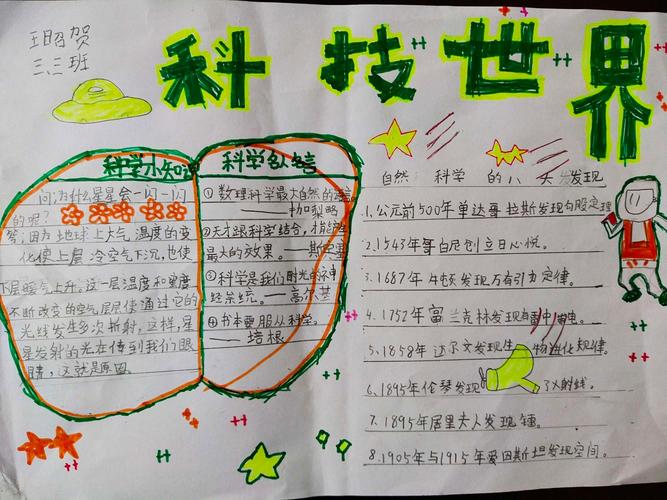 王昭贺
三、三班
科技世界
科学小知识
问:为什么星星会一闪一闪
的呢?
答:因为地球上大气温度的变
化使上层冷空气下沉,也使
下层暖气上升。这一层温度和密度
不断改变的空气层使通过它的
光线发生多次折射,这样,星
星发射的光在传到我们眼
睛,这就是原因。
科学名人名言
①数理科学最大自然的语言
——加梨略
②天才跟科学结合,才能
最大的效果。——斯宾塞
③科学是我们时光的神
经系统。——高尔基
④书本要服从科学。
——培根
自然科学的八大发现
1.公元前500年单达哥拉斯发现勾股定理
2.1543年哥白尼创立日心悦。
3.1687年牛顿发现万有引力定律。
4.1752年富兰克林发现雷中电。
5.1858年达尔文发现生物进化规律。
6.1895年伦琴发现了X射线。
7.1895年居里夫人发现镭。
8.1905年与1915年爱因斯坦发现空间。